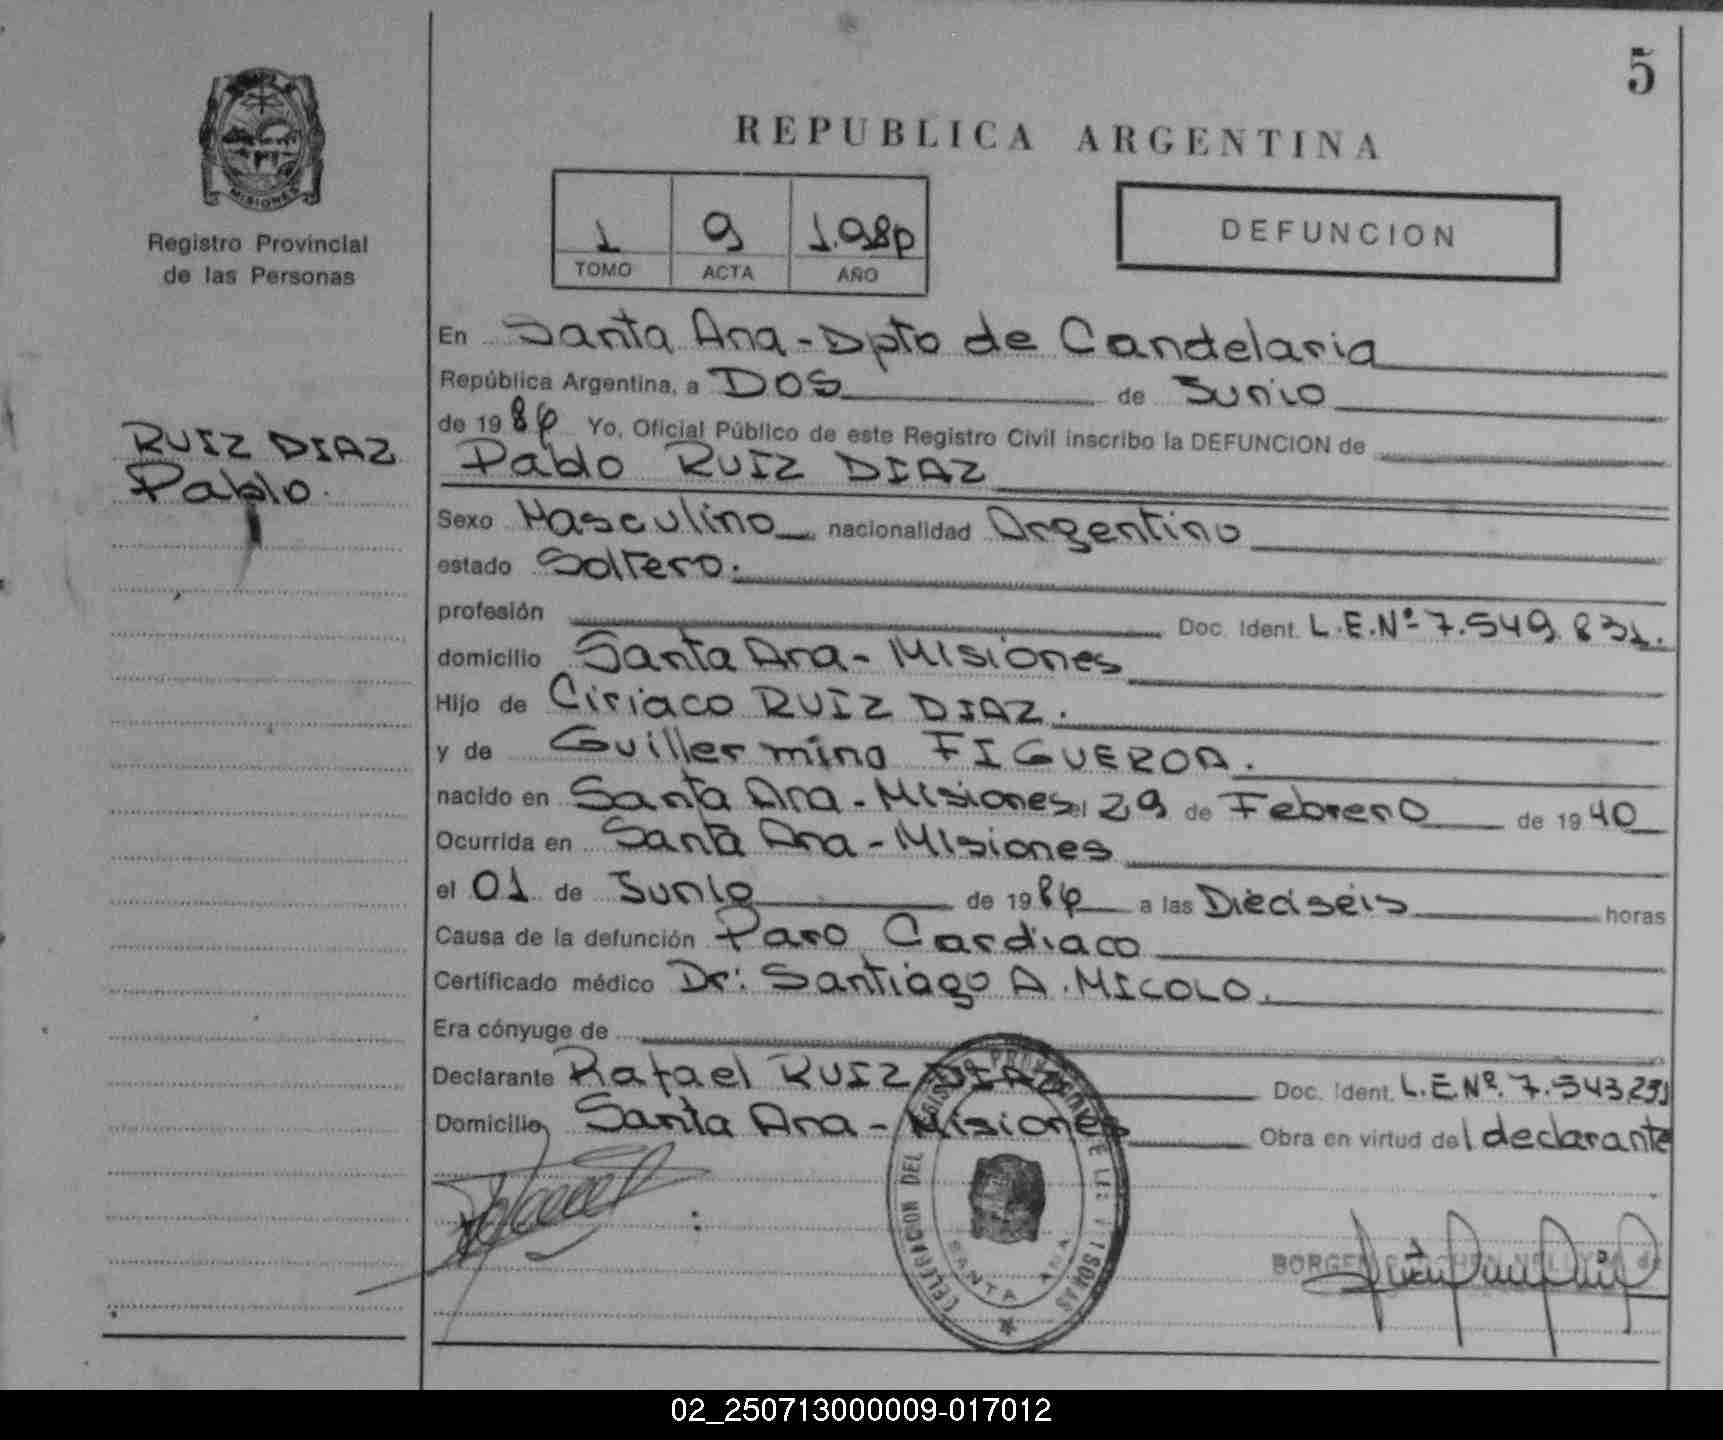 5
REPUBLICA ARGENTINA
MISIONES
Registro Provincial
de las Personas
1 9 1.986
TOMO ACTA AÑO
DEFUNCION
RUIZ DIAZ
Pablo.
En Santa Ana - Dpto de Candelaria
República Argentina, a DOS de Junio
de 1986 Yo, Oficial Público de este Registro Civil inscribo la DEFUNCION de
Pablo RUIZ DIAZ
Sexo Masculino nacionalidad Argentino
estado Soltero.
profesión Doc. Ident. L.E.Nº 7.549.831.
domicilio Santa Ana - Misiones
Hijo de Ciriaco RUIZ DIAZ.
y de Guillermina FIGUEROA.
nacido en Santa Ana - Misiones el 29 de Febrero de 1940
Ocurrida en Santa Ana - Misiones
el 01 de Junio de 1986 a las Dieciseis horas
Causa de la defunción Paro Cardiaco
Certificado médico Dr: Santiago A. MICOLO.
Era cónyuge de
Declarante Rafael RUIZ DIAZ Doc. Ident. L.E.Nº 7.543.291
Domicilio Santa Ana - Misiones Obra en virtud del declarante
SANTA ANA
02_250713000009-017012